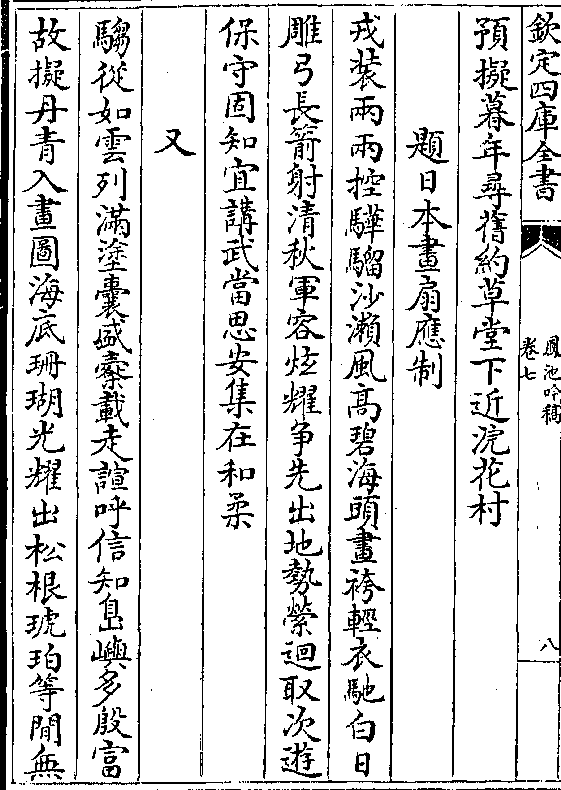 欽定四庫全書
鳳池吟稿
卷七
八
預擬暮年尋舊約草堂下近浣花村
題日本畫扇應制
戎裝兩兩控驊騮沙瀨風高碧海頭畫袴輕衣馳白日
雕弓長箭射清秋軍容炫耀争先出地勢縈迴取次遊
保守固知宜講武當思安集在和柔
又
騶從如雲列滿塗囊盛橐載走諠呼信知島嶼多殷富
故擬丹青入畫圖海底珊瑚光耀出松根琥珀等閒無